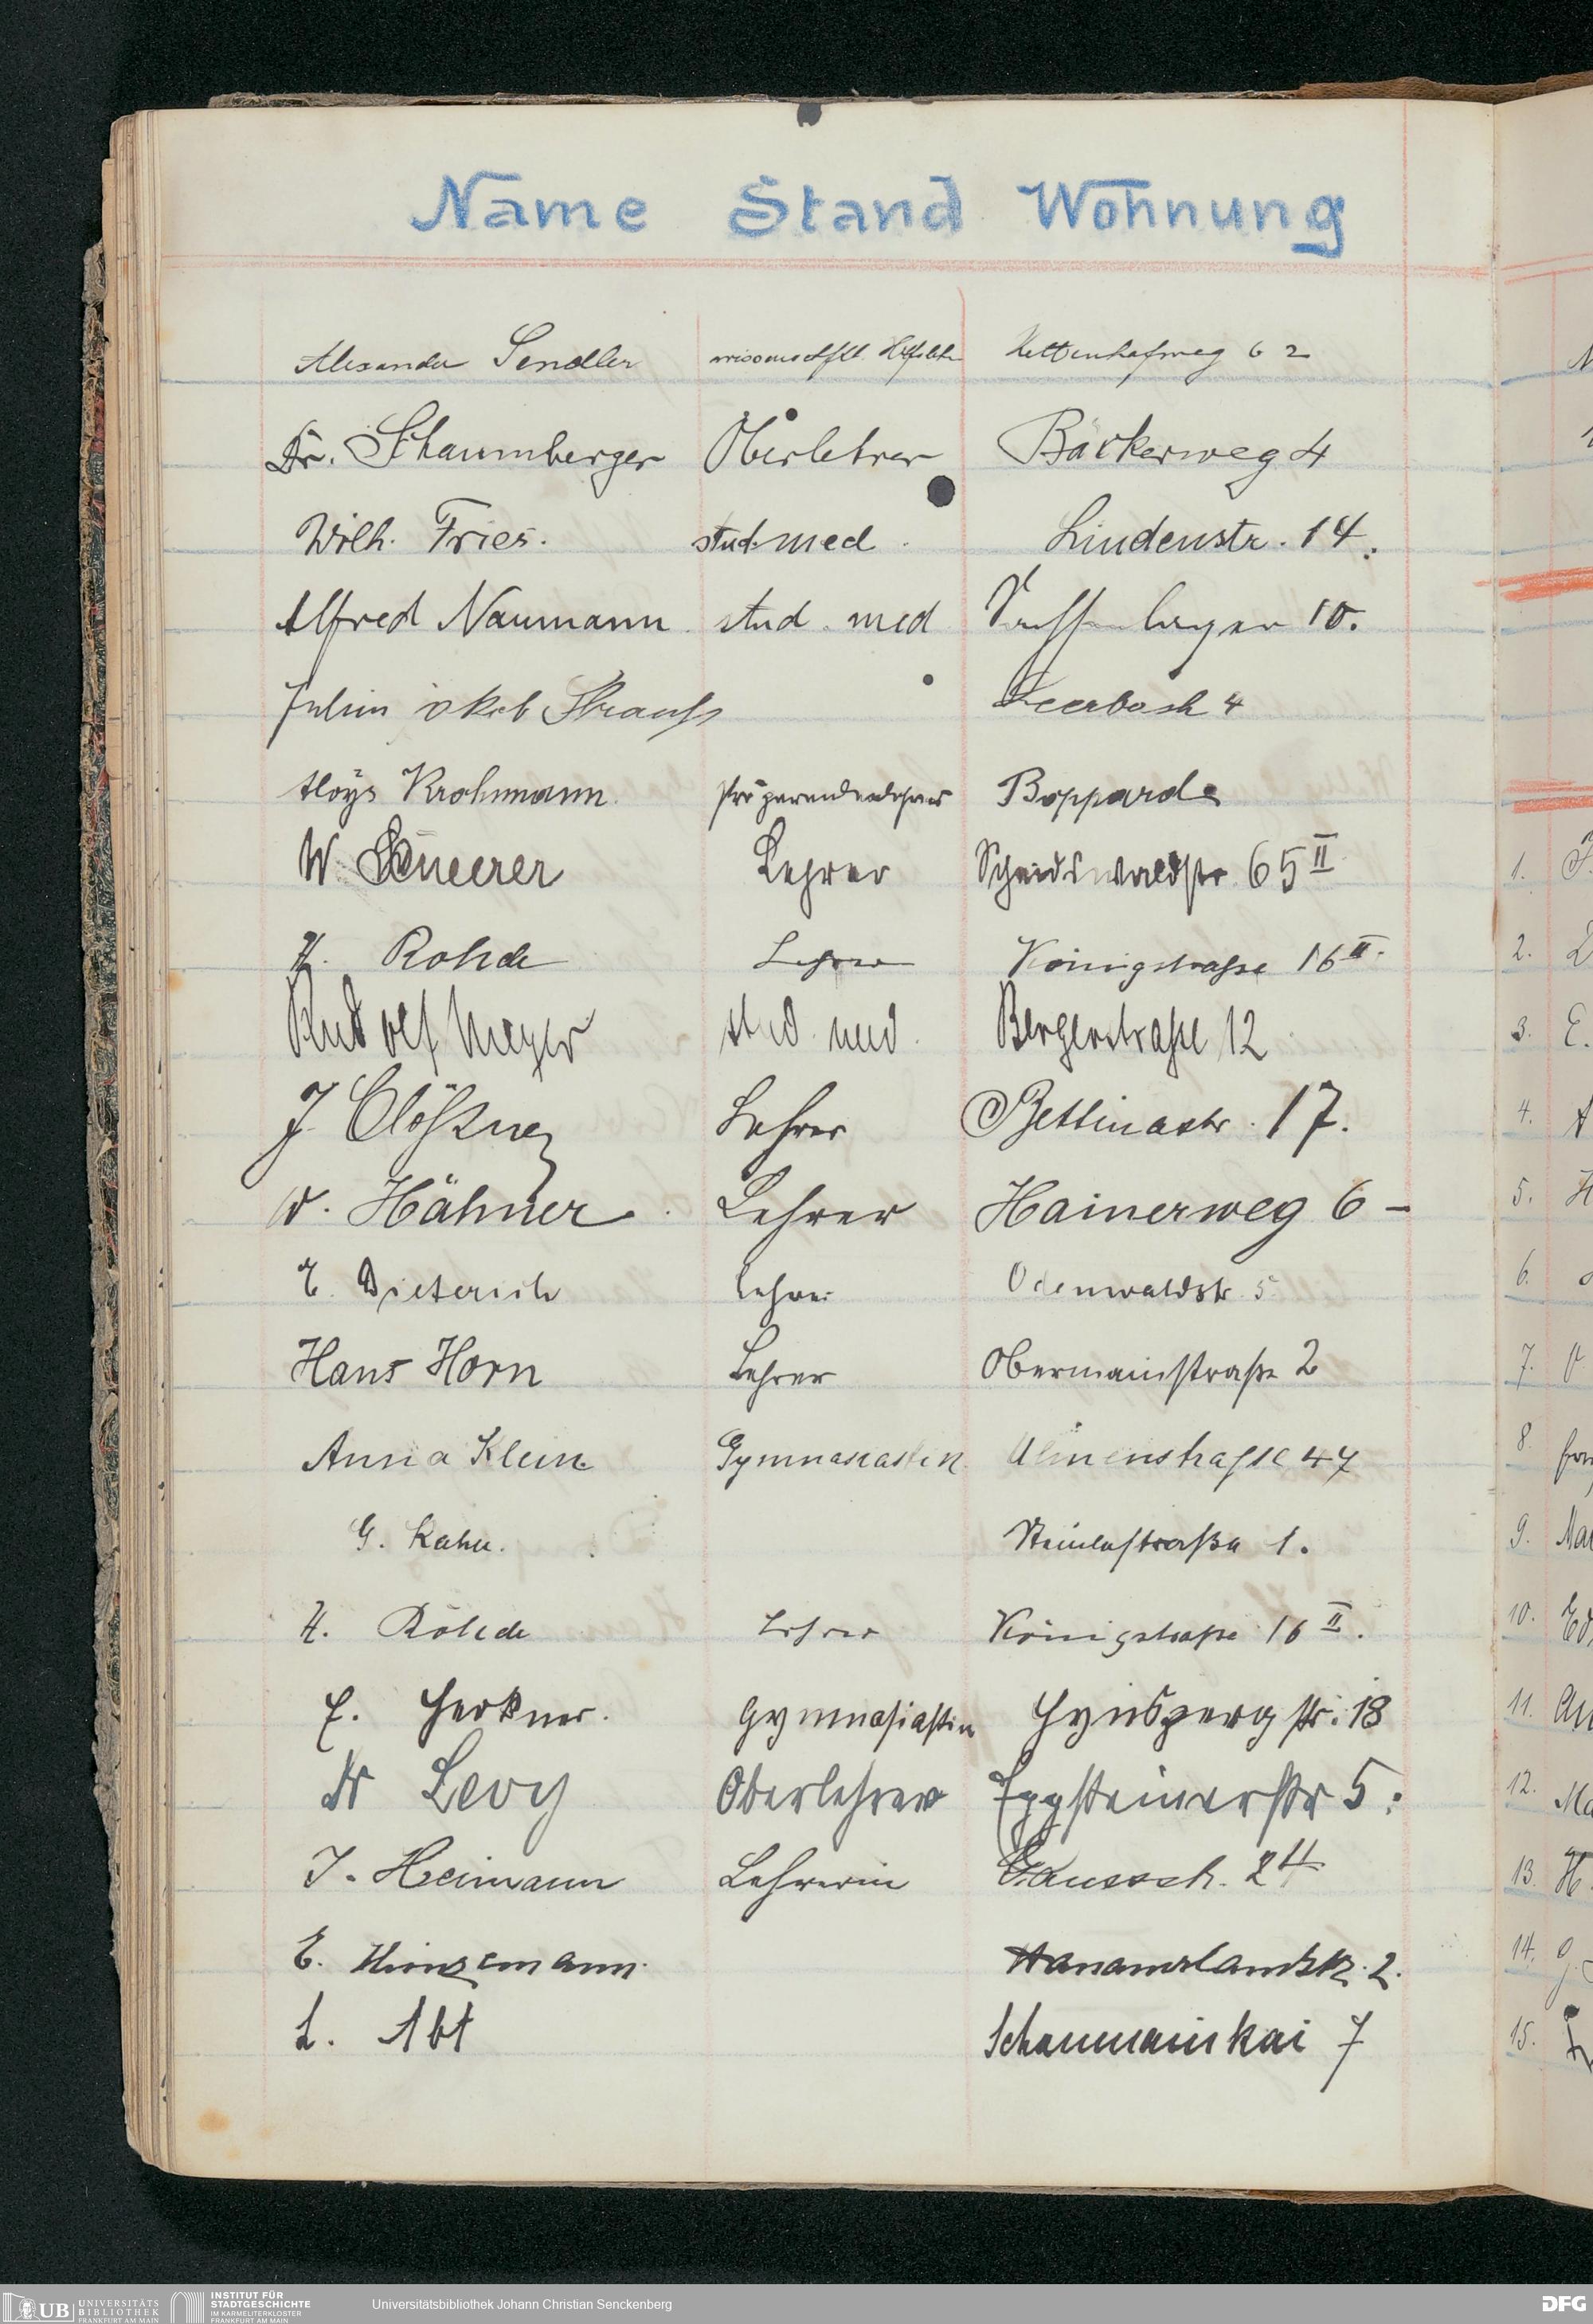 Name Stand Wohnung
Alexander Sendler wissenschftl. Hilfslehr Kettenhofweg 62
Dr. Schaumberger Oberlehrer Bäckerweg 4
Wilh. Fries. stud. med. Lindenstr. 14.
Alfred Naumann stud. med 10.
Julius Strauß Leerbach 4
Aloys Krohmann Präparandenlehrer Boppard
W. Scheerer Lehrer Scheidswaldstr. 65 II
H. Rohde Lehrer Königstraße 16 II.
Rudolf Meyer stud. med. Bergerstraße 12
J. Clößner Lehrer Bettinastr. 17.
W. Hähner Lehrer Hainerweg 6 –
E. Dieterich Lehrer Odenwaldstr. 5
Hans Horn Lehrer Obermainstraße 2
Anna Klein Gymnasiastin Ulmenstraße 47
G. Kahn. Steinlestraße 1.
H. Rohde Lehrer Königstraße 16 II.
E. Herkner. Gymnasiastin Hynspergstr. 18
Dr Levy Oberlehrer Eppsteinerstr 5.
J. Heimann Lehrerin Gaussstr. 24
E. Hinzemann. Hanauerlandstr. 2.
L. Abt Schaumainkai 7
1.
2.
3. E.
4.
5. H
6.
7.
8.
9.
10.
11.
12.
13. H
14.
15.
UB UNIVERSITÄTS
BIBLIOTHEK
FRANKFURT AM MAIN
INSTITUT FÜR
STADTGESCHICHTE
IM KARMELITERKLOSTER
FRANKFURT AM MAIN
Universitätsbibliothek Johann Christian Senckenberg
DFG